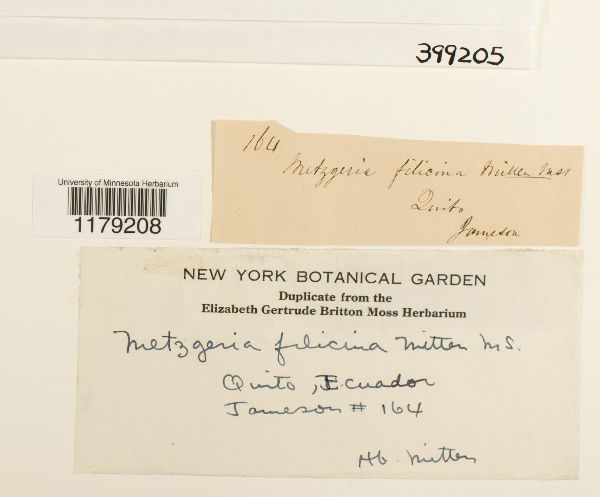 399205
164
Metzgeria filicina Mitten Mss
Quito
Jameson
University of Minnesota Herbarium
1179208
NEW YORK BOTANICAL GARDEN
Duplicate from the
Elizabeth Gertrude Britton Moss Herbarium
Metzgeria filicina Mitten MS.
Quito, Ecuador
Jameson # 164
Hb. Mitten